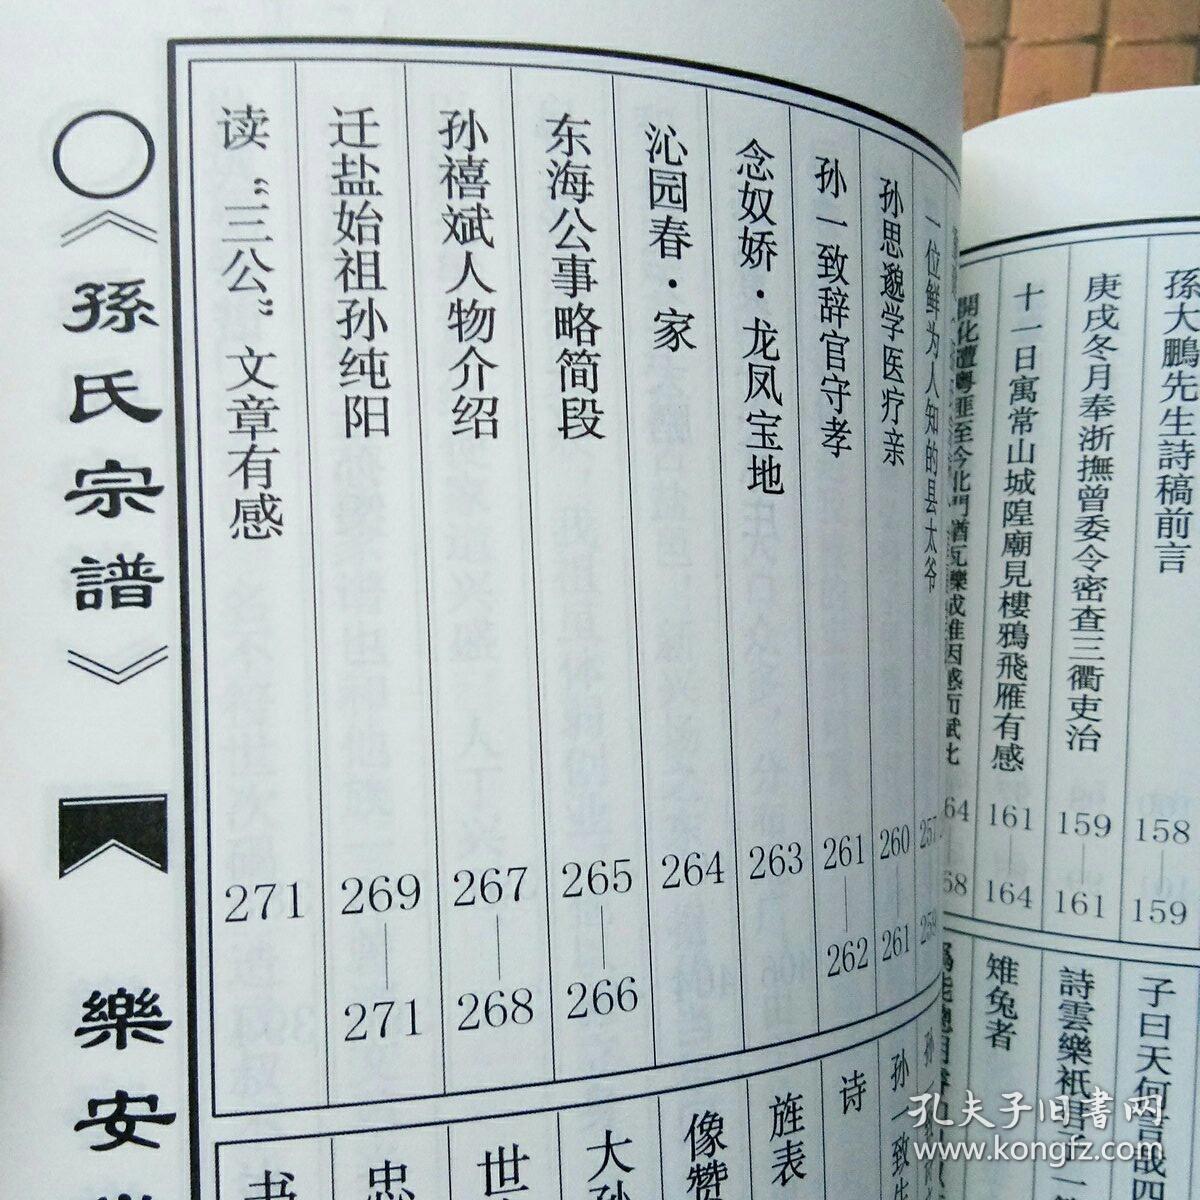 孫大鵬先生詩稿前言 158—159
庚戌冬月奉浙撫曾委令密查三衢吏治 159—161
十一日寓常山城隍廟見樓鴉飛雁有感 161—164
子曰天何言哉四
詩雲樂衹君子
雉兔者
一位鲜为人知的县太爷 257
孙思邈学医疗亲 260—261
孙一致辞官守孝 261—262
念奴娇·龙凤宝地 263
沁园春·家 264
东海公事略简段 265—266
孙禧斌人物介绍 267—268
迁盐始祖孙纯阳 269—271
读“三公”文章有感 271
孙一致
诗
旌表
像赞
大孙
世
忠
书
○《孫氏宗譜》
樂安
孔夫子旧书网
www.kongfz.com